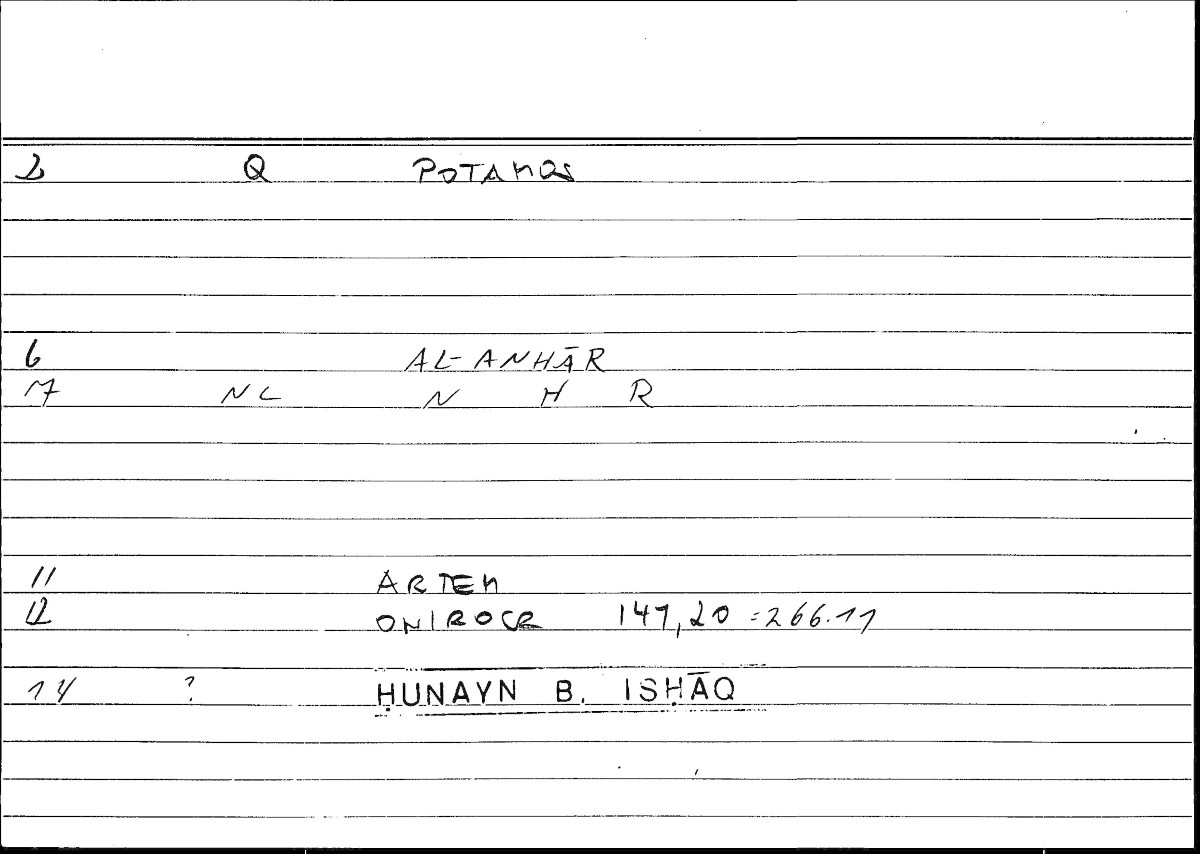 2 Q POTAMOS
6 AL-ANHĀR
7 NL N H R
11 ARTEM
12 ONIROCR 147,20 =266.11
14 ? ḤUNAYN B. ISḤĀQ